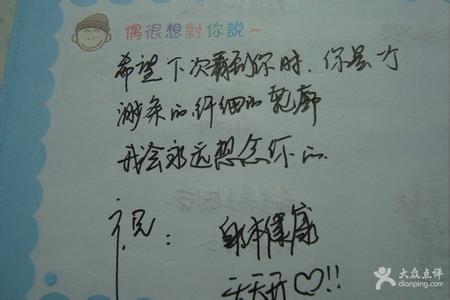 偶很想對你說~
希望下次看到你时.你是个
苗条的.纤细的轮廓
我会永远想念你的.
祝: 身体健康
天天开♡!!
大众点评
dianping.com